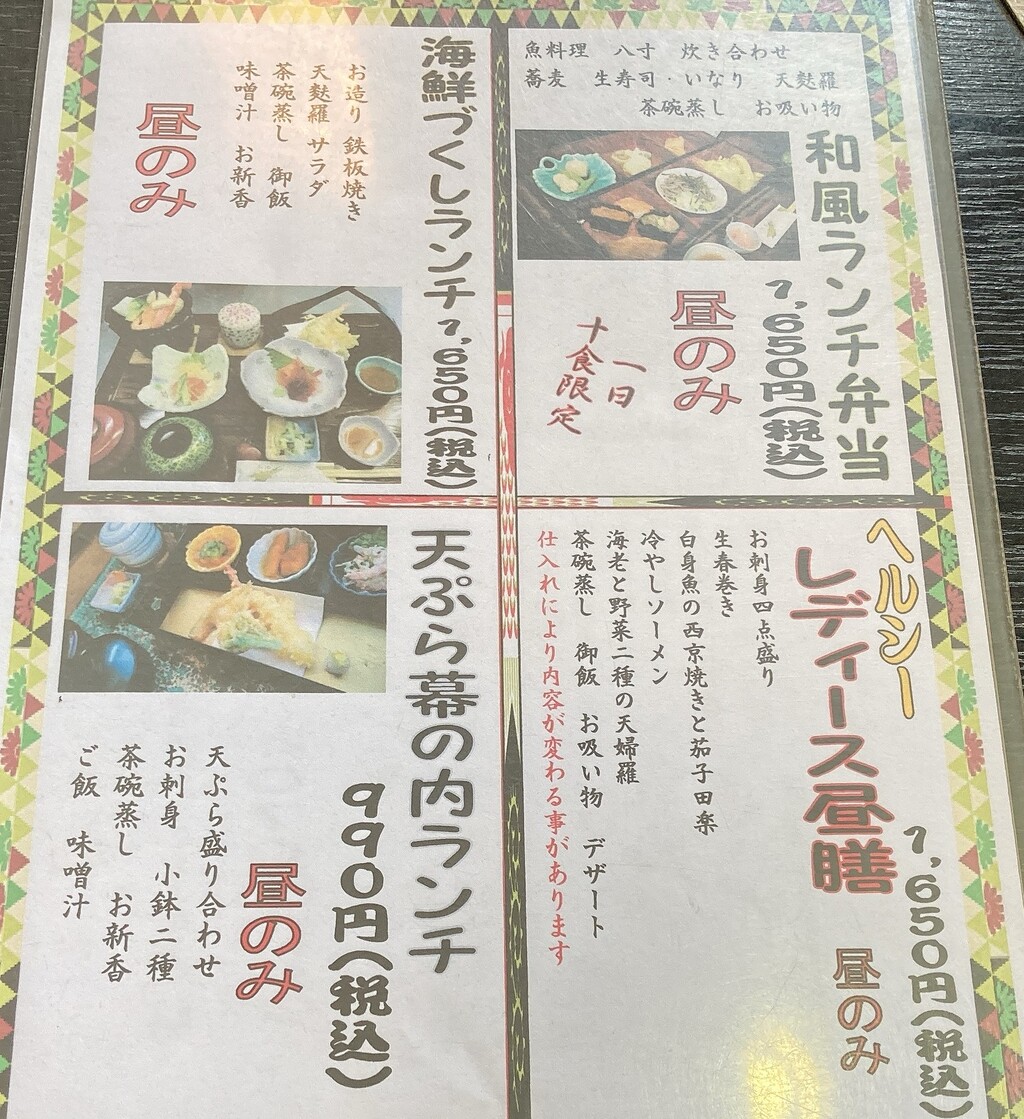 魚料理 八寸 炊き合わせ
蕎麦 生寿司・いなり 天麩羅
茶碗蒸し お吸い物
和風ランチ弁当
1,650円(税込)
昼のみ
一日
十食限定
海鮮づくしランチ 1,650円(税込)
お造り 鉄板焼き
天麩羅 サラダ
茶碗蒸し 御飯
味噌汁 お新香
昼のみ
ヘルシー
レディース昼膳
1,650円(税込)
昼のみ
お刺身四点盛り
生春巻き
白身魚の西京焼きと茄子田楽
冷やしソーメン
海老と野菜二種の天婦羅
茶碗蒸し 御飯 お吸い物 デザート
仕入れにより内容が変わる事があります
天ぷら幕の内ランチ
990円(税込)
昼のみ
天ぷら盛り合わせ
お刺身 小鉢二種
茶碗蒸し お新香
ご飯 味噌汁